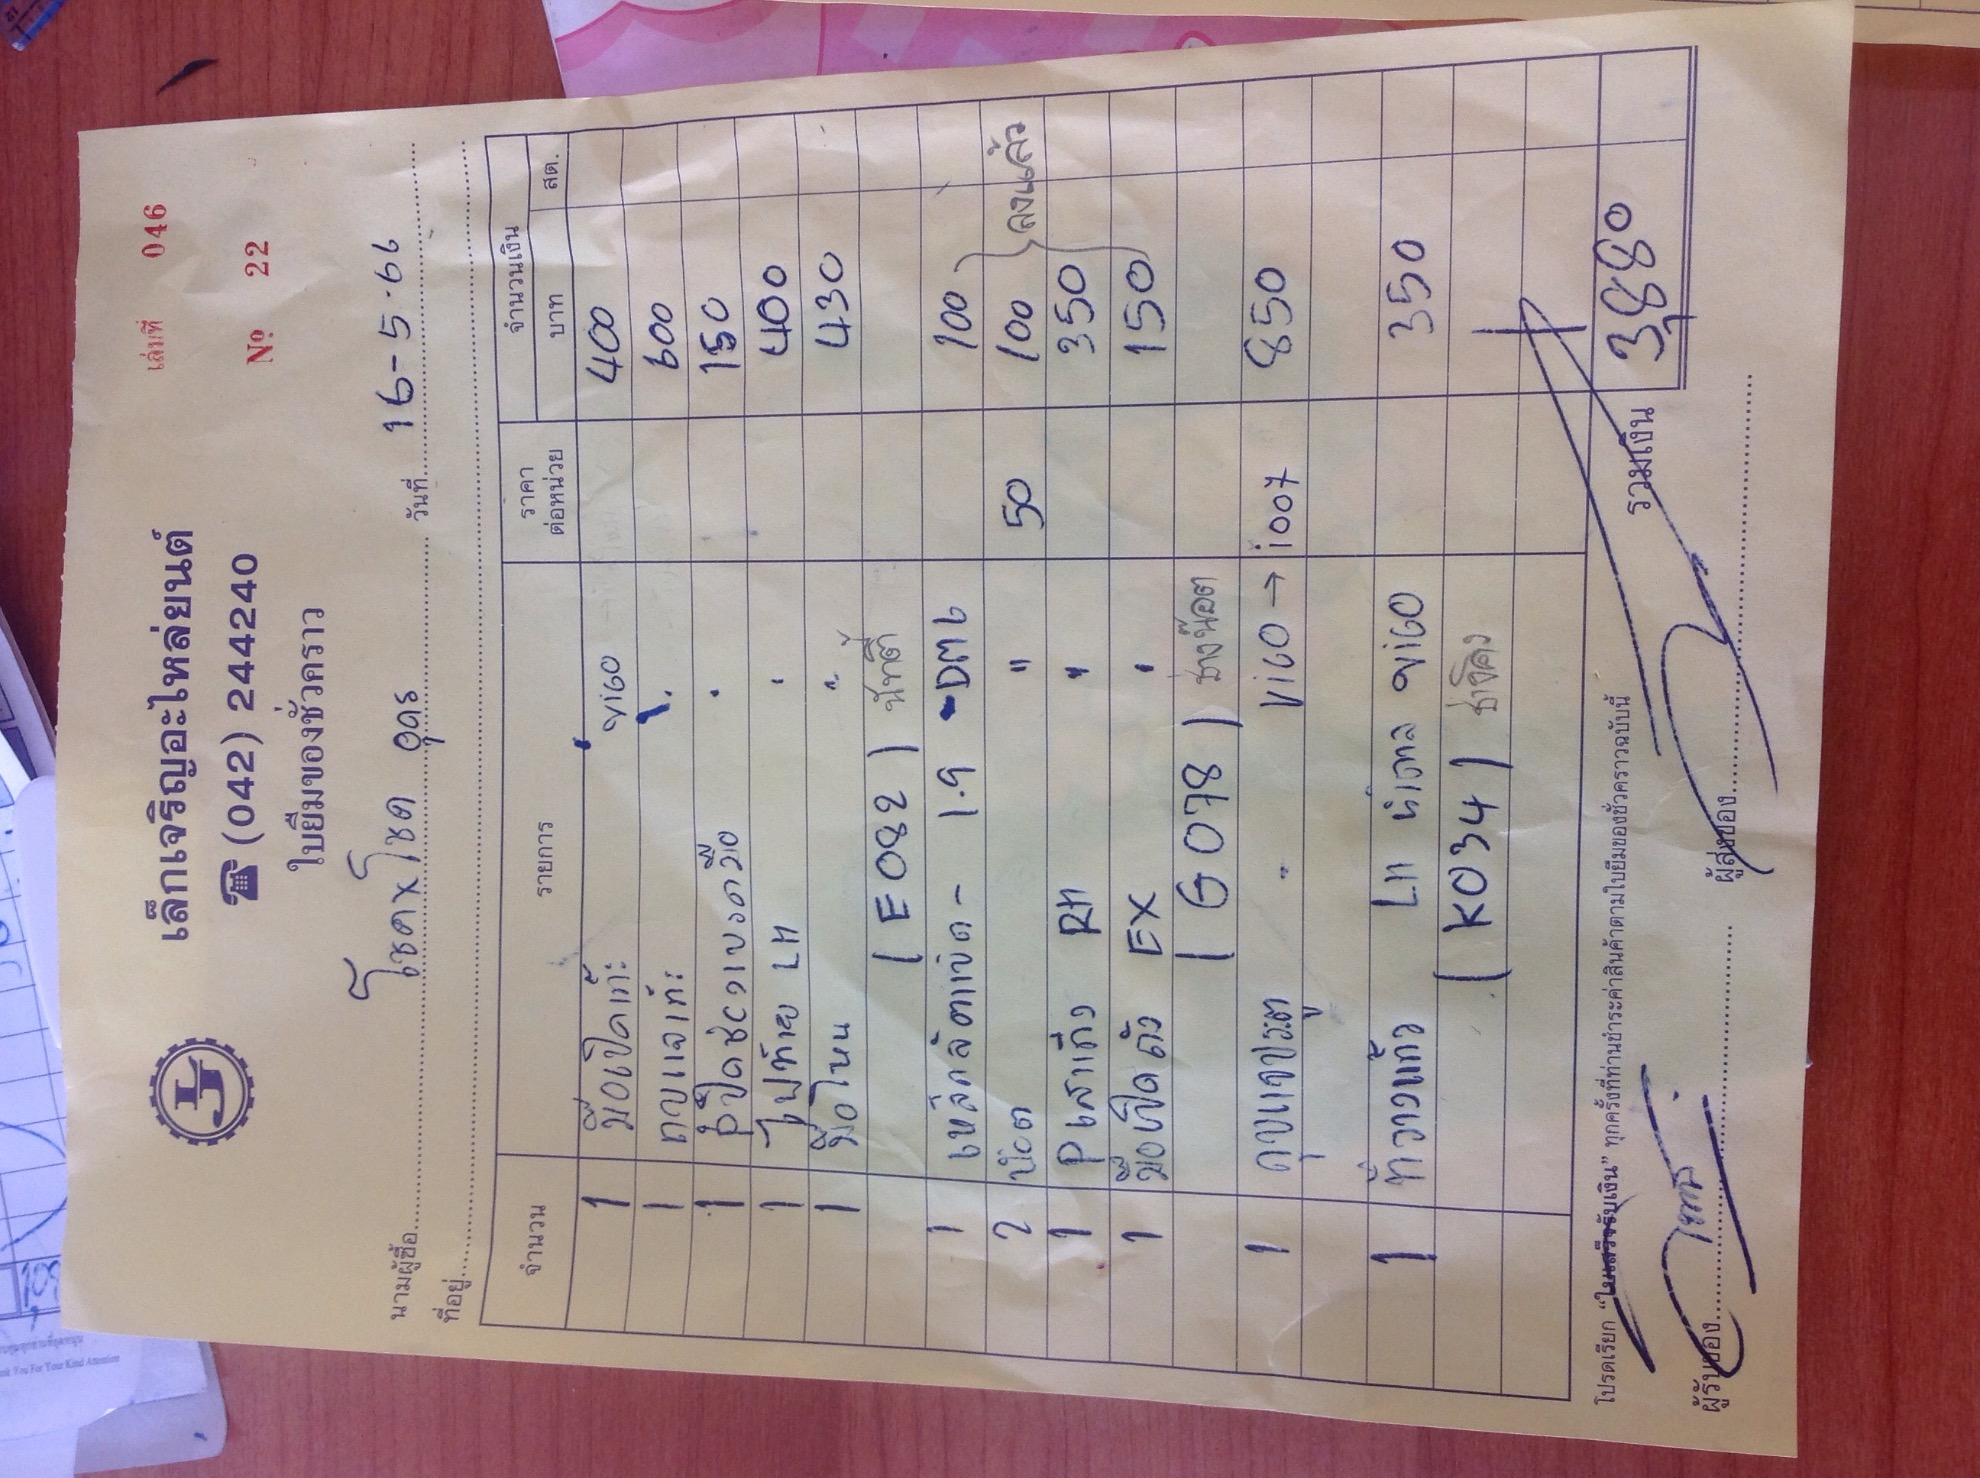 เล่มที่ 046
เล็กเจริญอะไหล่ยนต์
(042) 244240
Nº 22
ใบยืมของชั่วคราว
นามผู้ซื้อ โชค x โชค อุดร วันที่ 16-5-66
ที่อยู่
จำนวน รายการ ราคาต่อหน่วย จำนวนเงิน
บาท สต.
1 มือเปิดเก๊ะ VIGO 400
1 กุญแจเก๊ะ 600
1 150
1 ไฟท้าย LH 400
1 มือโหน " 430
( E082 )
1 เหล็ก - 1.9 DMb 100
2 น๊อต " 50 100 ลงแล้ว
1 P เสาเก๋ง RH " 350
1 มือเปิดตัว EX 150
( G078 ) ช่างน๊อต
1 กุญแจประตู VIGO → 1007 850
1 LH VIGO 350
( K034 )
โปรดเรียก “ใบเสร็จรับเงิน” ทุกครั้งที่ท่านชำระค่าสินค้าตามใบยืมของชั่วคราวฉบับนี้
รวมเงิน 3,880
ผู้รับของ ผู้ส่งของ